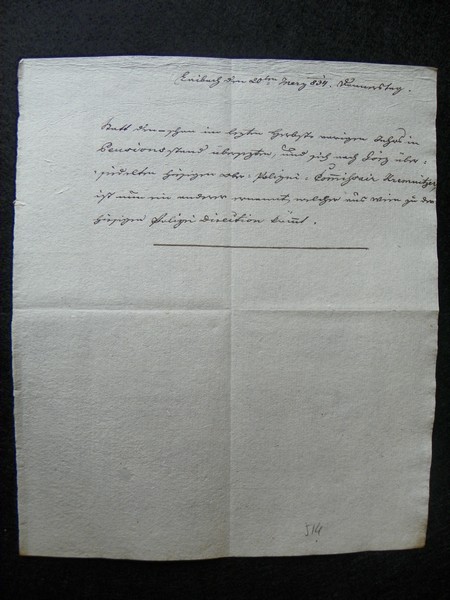 Laibach den 20ten Merz 834. Donnerstag.
Statt dem schon im lezten Herbste vorigen Jahrs in
Pensionsstand übersezten, und sich nach Görz über-
siedelten hiesigen ober-Polizei-Commissair
ist nun ein anderer ernannt, welcher aus Wien zu der
hiesigen Polizei Direction kömt.
514